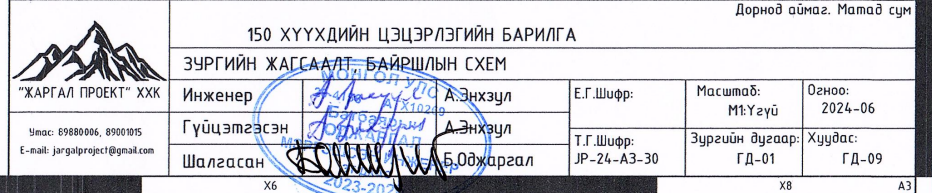 Дорнод аймаг. Матад сум
150 ХҮҮХДИЙН ЦЭЦЭРЛЭГИЙН БАРИЛГА
ЗУРГИЙН ЖАГСААЛТ, БАЙРШЛЫН СХЕМ
"ЖАРГАЛ ПРОЕКТ" ХХК
Утас: 89880006, 89001015
E-mail: jargalproject@gmail.com
Инженер А.Энхзул
Гүйцэтгэсэн А.Энхзул
Шалгасан Б.Оджаргал
МОНГОЛ УЛС
ОДЖАРГАЛ
2023-202
Е.Г.Шифр:
Масштаб:
М1:Үгүй
Огноо:
2024-06
Т.Г.Шифр:
JP-24-А3-30
Зургийн дугаар:
ГД-01
Хуудас:
ГД-09
X6 X8 А3